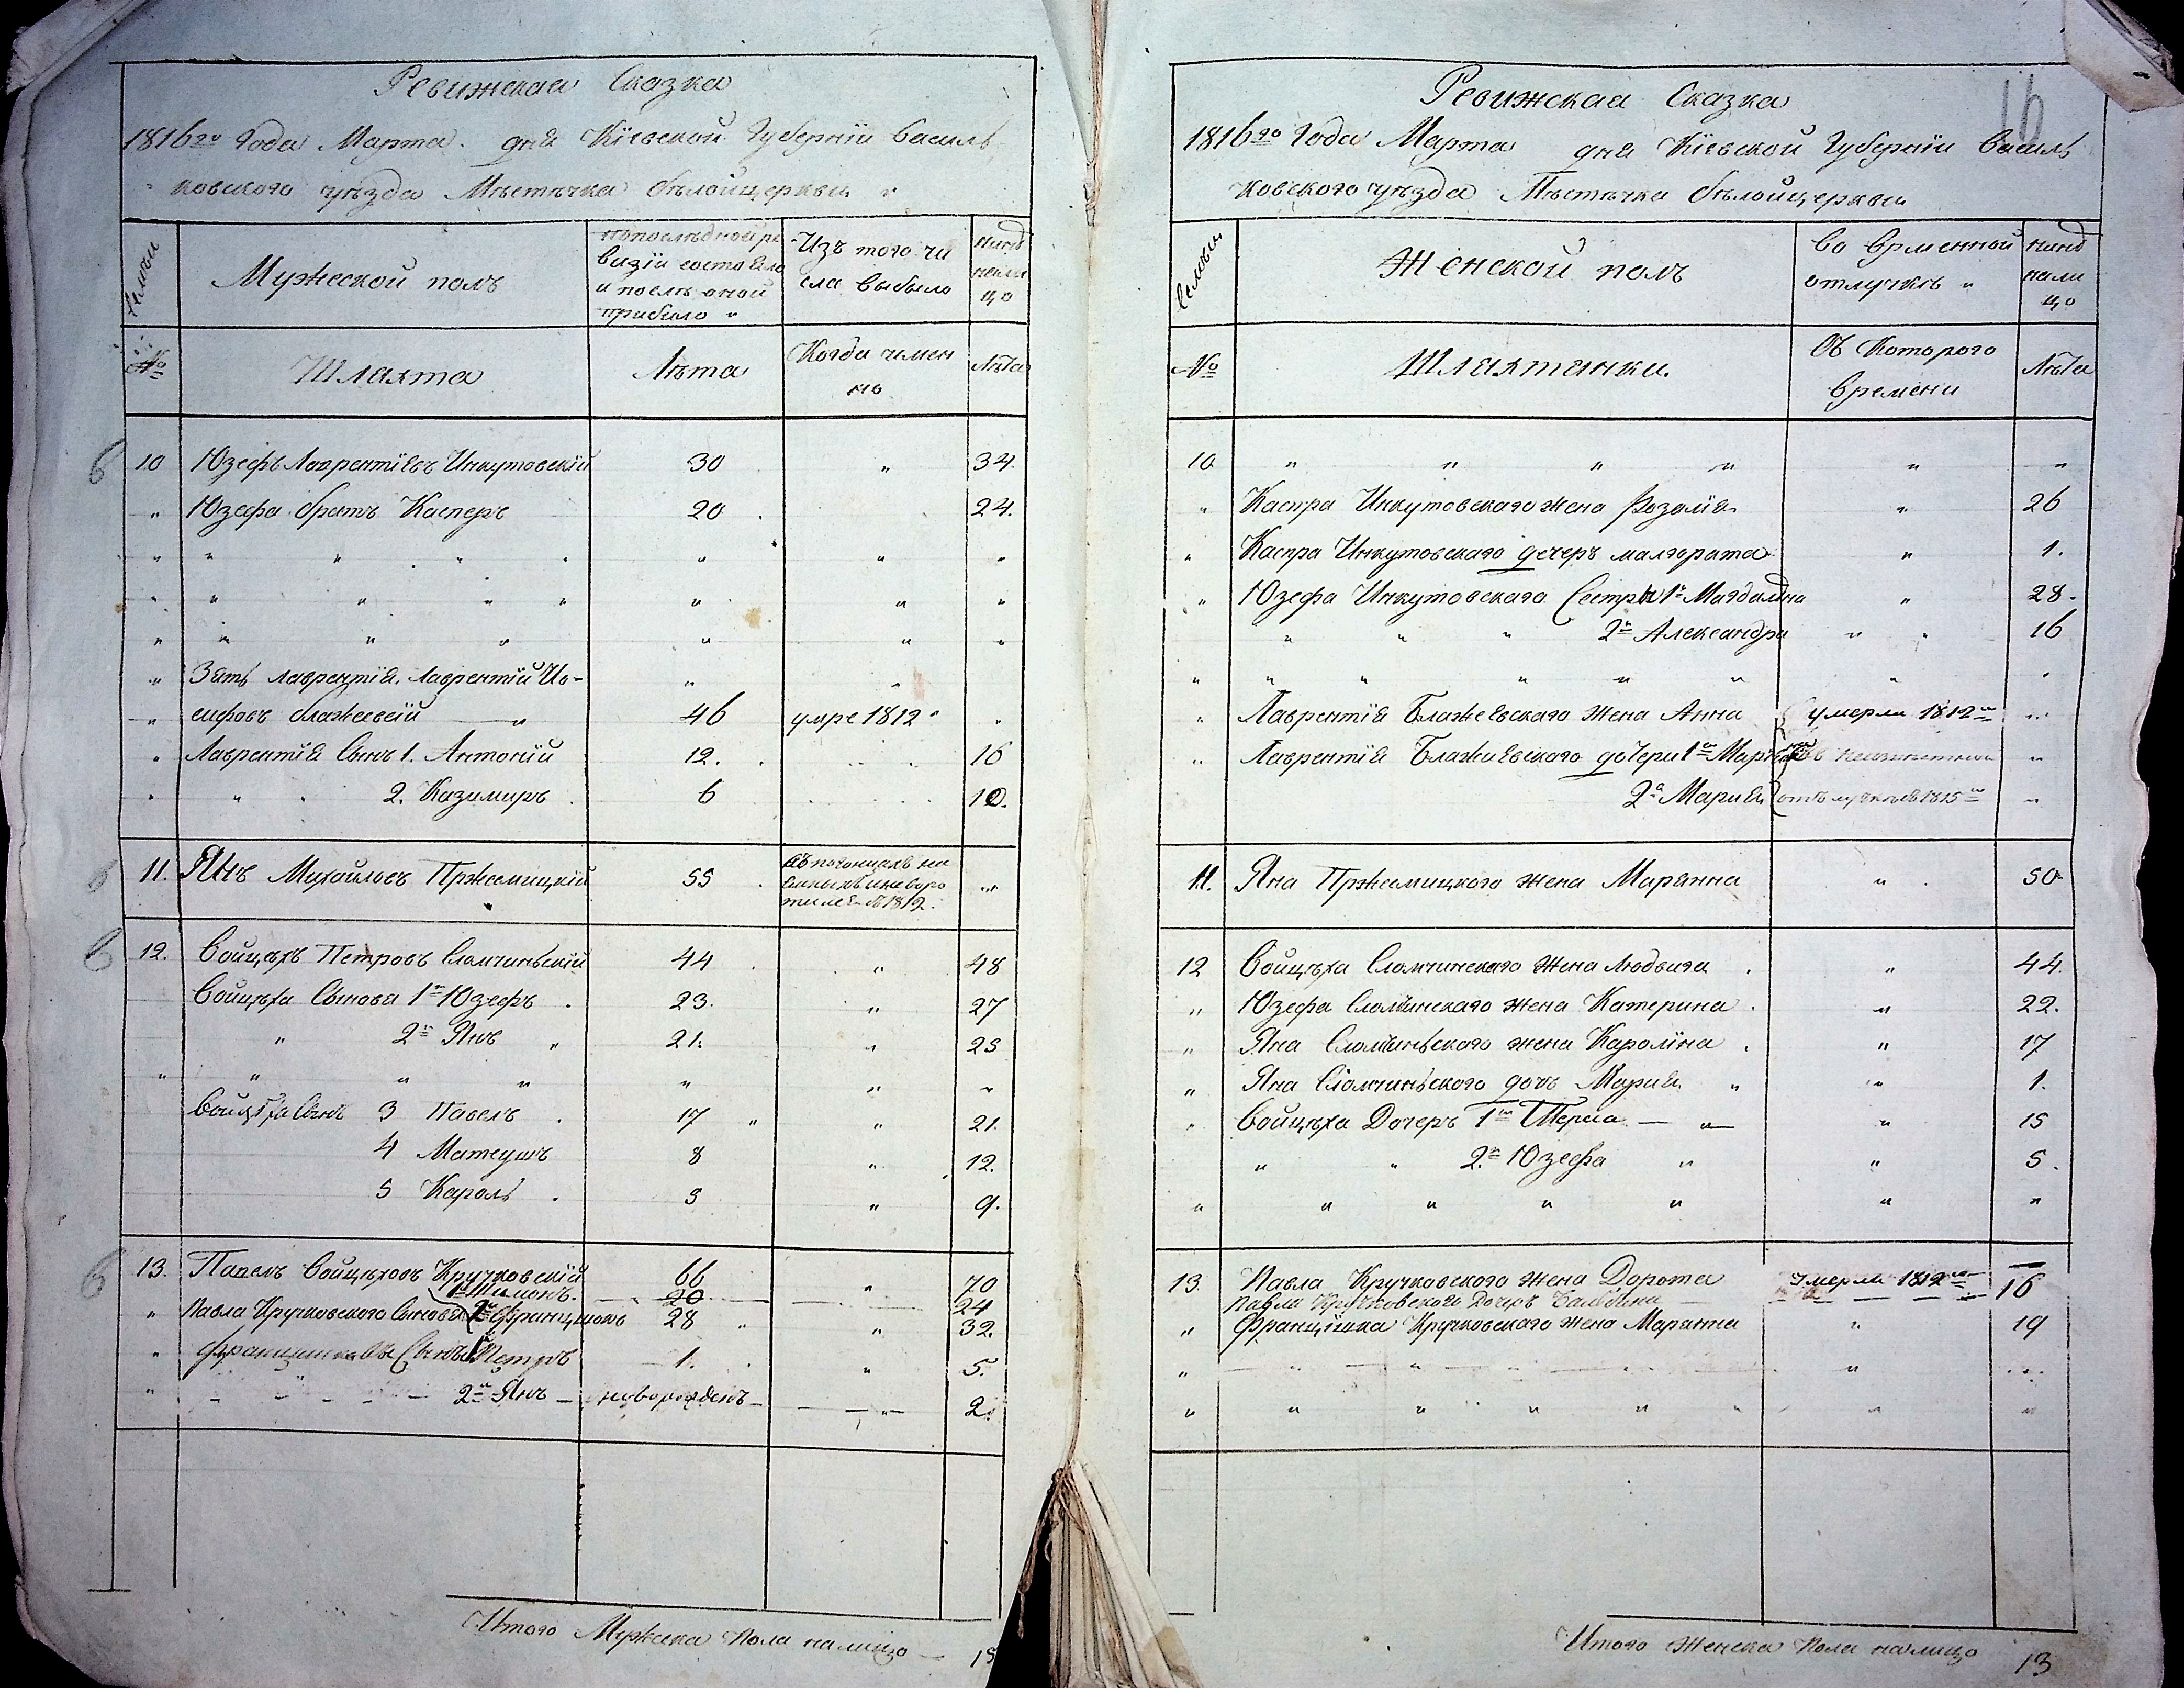 Ревижская Сказка
1816го Года Марта. дня Кіевской Губерніи Василь
ковского уѣзда Мѣстѣчка бѣлойцеркви
Семьи
Мужеской полъ
попослѣдной ре
визіи состояло
и послѣ оной
прибыло
Изъ того чи
сла выбыло
нынѣ
нали
цо
№
Шляхта
Лѣта
Когда имен
но
Лѣта
10 Юзефъ Лаврентіевъ Инкутовскій 30 " 34.
" Юзефа братъ Касперъ 20 24.
" Зять лаврентія. лаврентій Ио-
" сифовъ блажеевсій " 46 умре 1812 "
" Лаврентія Сынъ 1. Антоній 12. 16
" " 2. Казимиръ 6 10.
11. Янъ Михайловъ Пржесмицкій 55
тился въ 1812.
12. Войцѣхъ Петровъ Сломчиньскій 44 " 48
Войцѣха Сынова 1й Юзефъ 23. " 27
" 2й Янъ " 21. " 25
Войцѣха Сынъ 3 Павелъ 17 " 21.
4 Матеушъ 8 " 12.
5 Кароль 5 " 9.
13. Павелъ Войцѣховъ Кручковскій 66 " 70
1й Шимонъ. 20 24
" Павла Кручковского Сынова 2й Францишокъ 28 " 32.
" Сынъ 1й Петръ 1. " 5.
" 2й Янъ новорожденъ 2.
Итого Мужеска Пола налицо — 15
16
Ревижская Сказка
1816го Года Марта дня Кіевской Губерніи Василь
ковского уѣзда Мѣстѣчка бѣлойцеркви
Семьи
Женской полъ
Во Врменной
отлучкѣ "
нынѣ
нали
цо
№
Шляхтянки.
Об Которого
Времени
Лѣта
10. " " " " " "
" Каспра Инкутовскаго жена Розалія " 26
" Каспра Инкутовскаго дочеръ малгората " 1.
" Юзефа Инкутовскаго Сестры 1я Магдалѣна " 28.
" " " 2я Александра " 16
" Лаврентія Блажеевскаго жена Анна умерла 1812го "
" Лаврентія Блажиевскаго дочери 1я "
2я Марія отлучкѣ 1815го "
11. Яна Пржесмицкого жена Маріянна " 50
12 Войцѣха Сломчинскаго жена Людвига " 44.
" Юзефа Сломчинскаго жена Катерина " 22.
" Яна Сломчиньского жена Каролина " 17
" Яна Сломчиньского дочь Марія " 1.
" Войцѣха Дочеръ 1я — " — " 15
" " 2я Юзефа " " 5.
13. Павла Кручковского жена Дорота умерла 1812го —
Павла Кручковского Дочеръ 16
" Францишка Кручковскаго жена Маріянна " 19
Итого Женска Пола налицо 13